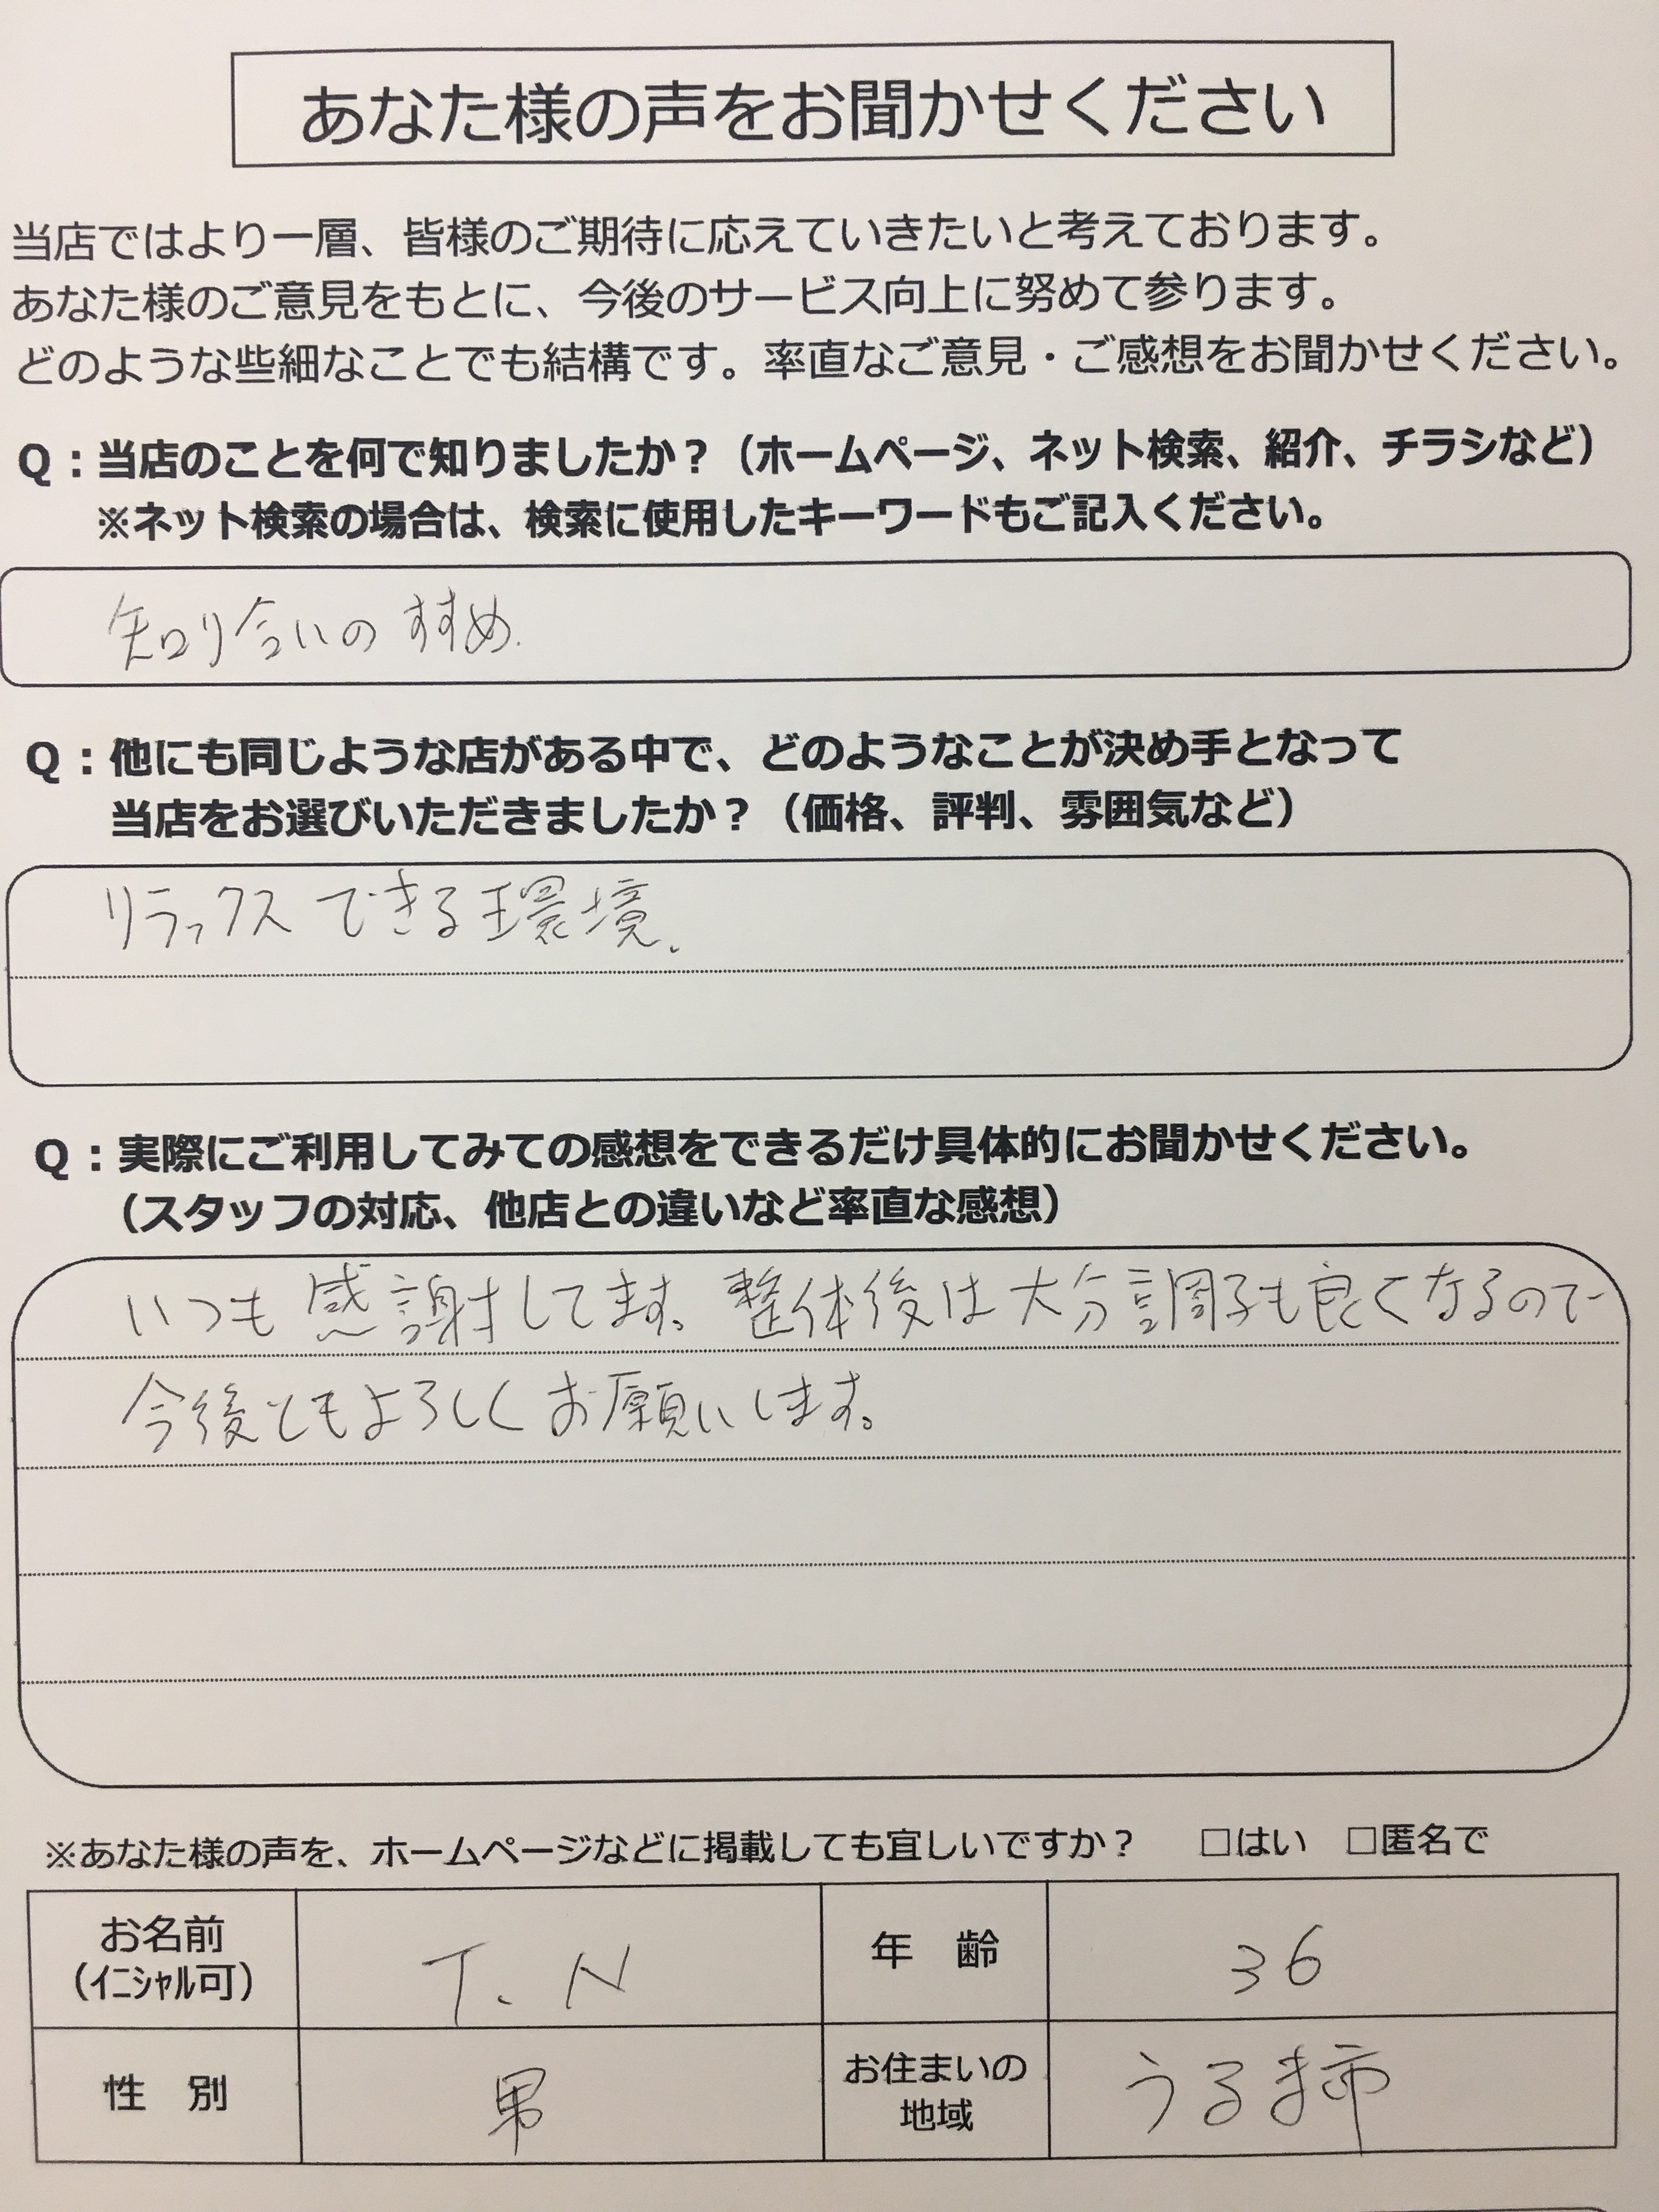 あなた様の声をお聞かせください
当店ではより一層、皆様のご期待に応えていきたいと考えております。
あなた様のご意見をもとに、今後のサービス向上に努めて参ります。
どのような些細なことでも結構です。率直なご意見・ご感想をお聞かせください。
Q：当店のことを何で知りましたか？（ホームページ、ネット検索、紹介、チラシなど）
※ネット検索の場合は、検索に使用したキーワードもご記入ください。
知り合いのすすめ.
Q：他にも同じような店がある中で、どのようなことが決め手となって
当店をお選びいただきましたか？（価格、評判、雰囲気など）
リラックスできる環境.
Q：実際にご利用してみての感想をできるだけ具体的にお聞かせください。
（スタッフの対応、他店との違いなど率直な感想）
いつも感謝してます。整体後は大分調子も良くなるので
今後ともよろしくお願いします。
※あなた様の声を、ホームページなどに掲載しても宜しいですか？ □はい □匿名で
お名前 T.N 年 齢 36
(イニシャル可)
性 別 男 お住まいの うるま市
地域